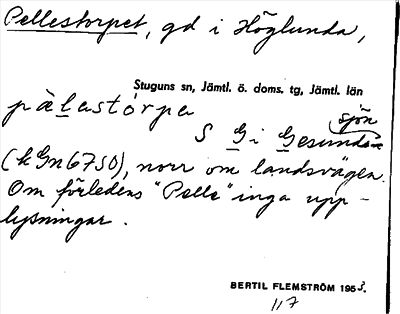 Pellestorpet, gd i Höglunda,
Stuguns sn, Jämtl. ö. doms. tg, Jämtl. län
pàlastórpa
sjön
S G i Gesunden
(kGn6750), norr om landsvägen.
Om förledens "Pelle" inga upp-
lysningar.
BERTIL FLEMSTRÖM 1953.
117